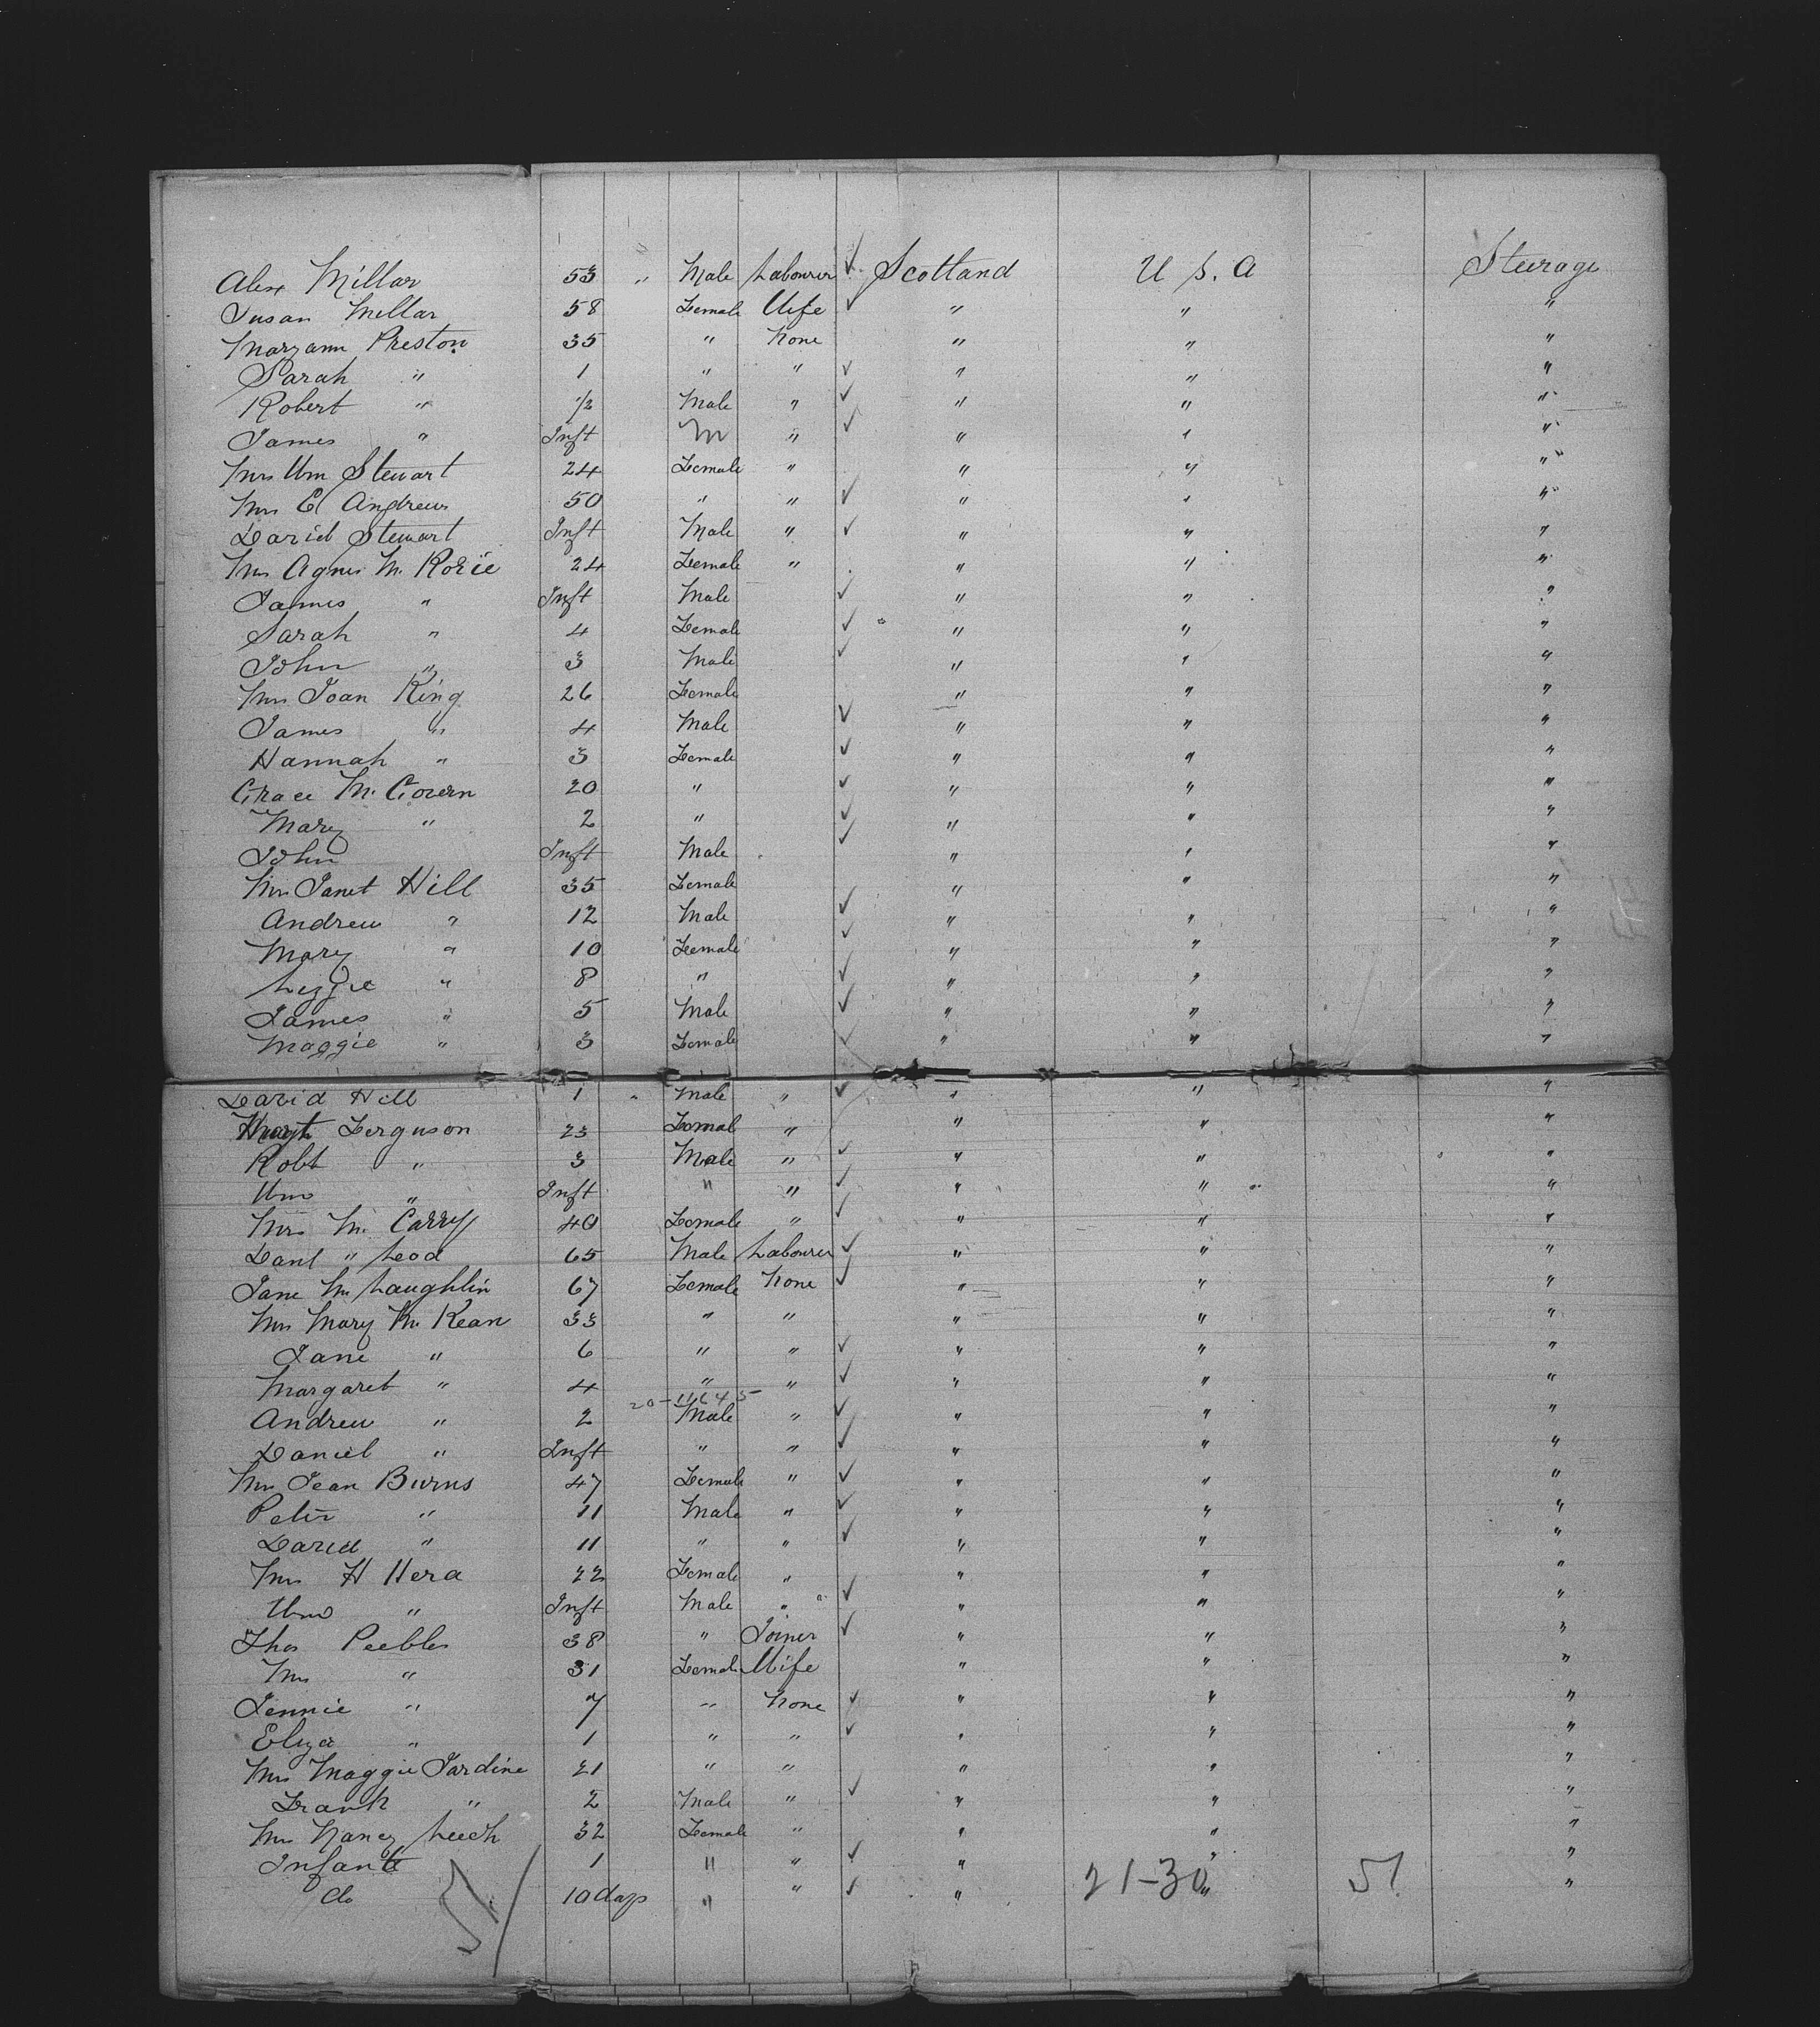 Alex Millar 53 " Male Labourer ✓ Scotland U. S. A Steerage
Susan Millar 58 Female Wife ✓ " " "
Maryann Preston 35 " None " " "
Sarah " 1 " " ✓ " " "
Robert " ½ Male " ✓ " " "
James " Inft M " ✓ " " "
Mrs Wm Stewart 24 Female " " " "
Mrs E Andrews 50 " " ✓ " " "
David Stewart Inft Male " ✓ " " "
Mrs Agnes Mc Rorie 24 Female " " " "
James " Inft Male ✓ " " "
Sarah " 4 Female ✓ " " "
John " 3 Male ✓ " " "
Mrs Joan King 26 Female " " "
James " 4 Male ✓ " " "
Hannah " 3 Female ✓ " " "
Grace Mc Govern 20 " ✓ " " "
Mary " 2 " ✓ " " "
John Inft Male ✓ " " "
Mrs Janet Hill 35 Female " " "
Andrew " 12 Male ✓ " " "
Mary " 10 Female ✓ " " "
Lizzie " 8 " ✓ " " "
James " 5 Male ✓ " " "
Maggie " 3 Female ✓ " " "
David Hill 1 " Male " ✓ " " "
Ferguson 23 Femal " " " "
Robt " 3 Male " ✓ " " "
Wm " Inft " " ✓ " " "
Mrs Mc Carry 40 Female " ✓ " " "
Danl " Leod 65 Male Labourer ✓ " " "
Jane Mc Laughlin 67 Female None ✓ " " "
Mrs Mary Mc Kean 33 " " " " "
Jane " 6 " " ✓ " " "
Margaret " 4 " " ✓ " " "
Andrew " 2 Male " ✓ " " "
Daniel " Inft " " ✓ " " "
Mrs Jean Burns 47 Female " ✓ " " "
Peter " 11 Male " ✓ " " "
David " 11 " " ✓ " " "
Mrs H Hera 22 Female " " " "
Wm " Inft Male " ✓ " " "
Thos Peebles 38 " Joiner ✓ " " "
Mrs " 31 Female Wife " " "
Jennie " 7 " None ✓ " " "
Eliza " 1 " " ✓ " " "
Mrs Maggie Jardine 21 " " " " "
Frank " 2 Male " ✓ " " "
Mrs Nancy Leech 32 Female " " " "
Infant 1 " " ✓ " " "
do 10 days " " ✓ " " "
21-30 51
51/